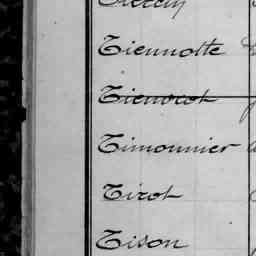 Tiennotte
Tienvrot
Timonnier
Tirot
Tison